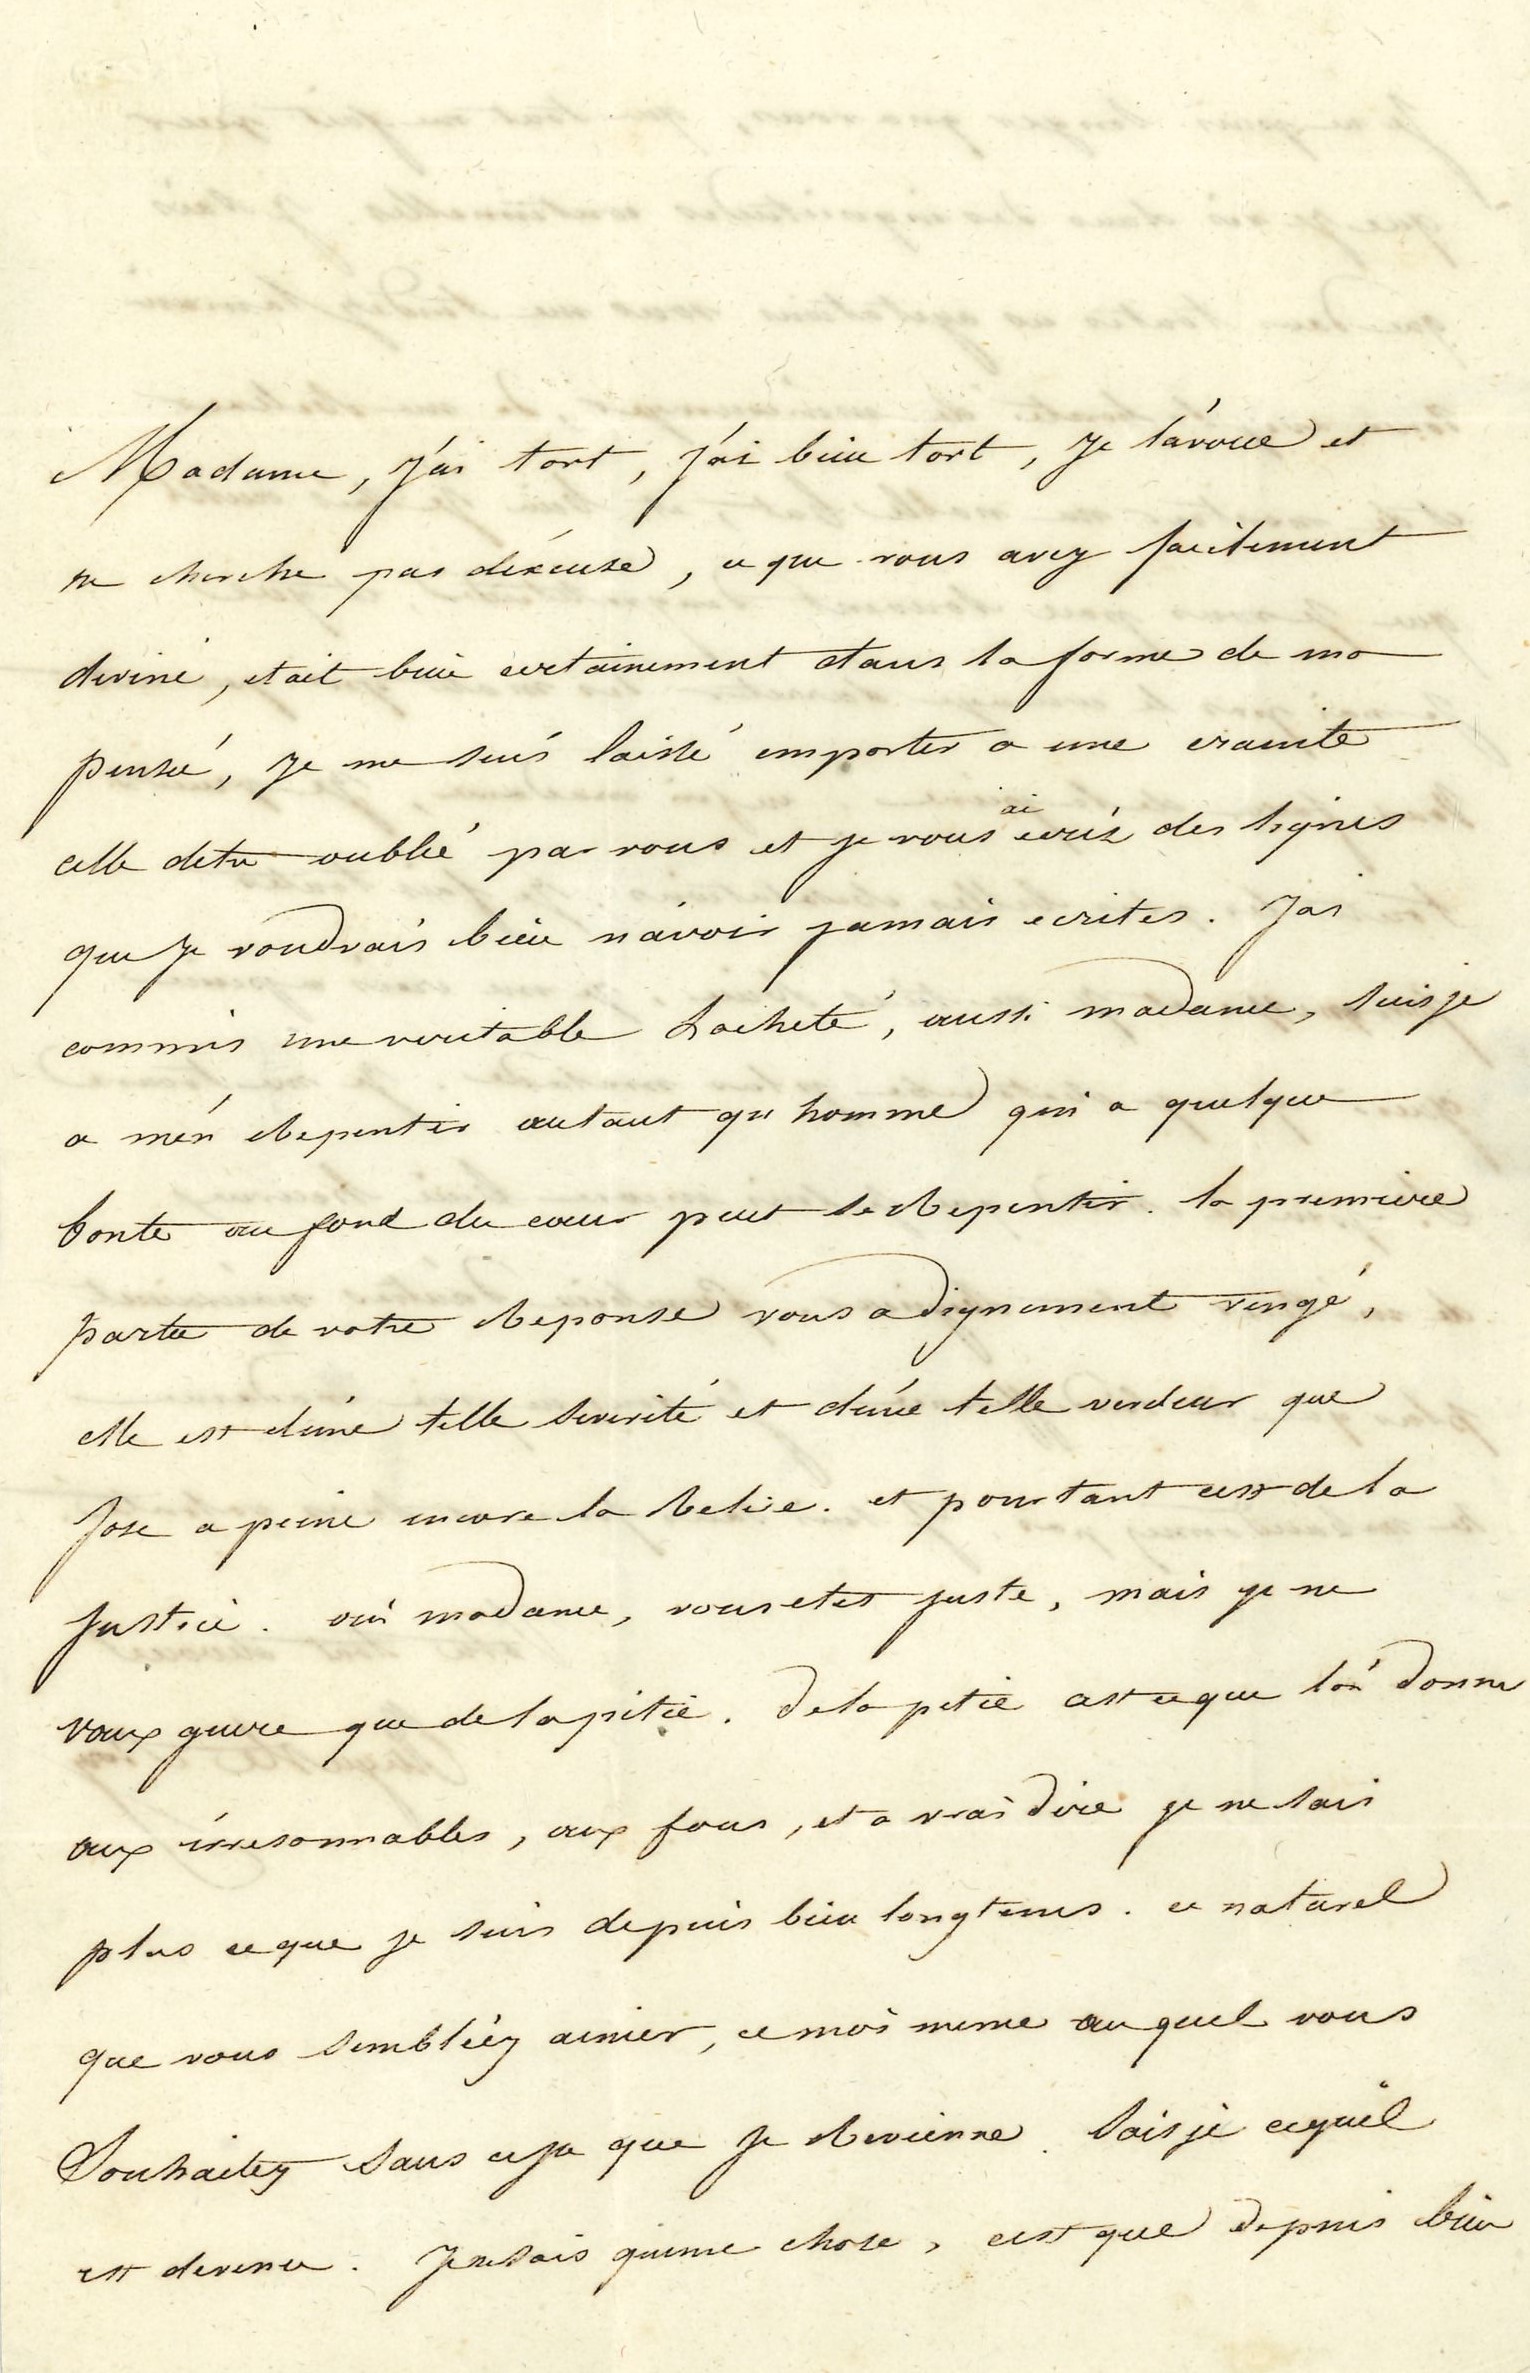 Madame, J'ai tort, J'ai bien tort, Je l'avoue et
ne cherche pas d'excuse, ce que vous avez facilement
deviné, etait bien certainement dans la forme de ma
pensée, Je me suis laissé emporter a une crainte
celle detre oublié par vous et je vous ai écris des lignes
que Je voudrais bien n'avoir jamais ecrites. J'ai
commis une veritable Lacheté, aussi madame, suis je
a m'en Repentir autant qu homme qui a quelque
bonté au fond du cœur peut se Repentir. la premiere
partie de votre Reponse vous a dignement vengé,
elle est d'une telle severité et d'une telle verdeur que
J'ose a peine encore la Relire. et pourtant cest de la
Justice. oui madame, vous etes juste, mais je ne
vaux guere que de la pitié. De la pitié cest ce que l'on donne
aux irresonnables, aux fous, et a vrai dire je ne sais
plus ce que je suis depuis bien longtems. ce naturel
que vous sembliez aimer, ce moi meme au quel vous
Souhaitez sans cesse que Je Revienne. Sais je ce qu'il
est devenu. Je ne sais qu'une chose, cest que depuis bien